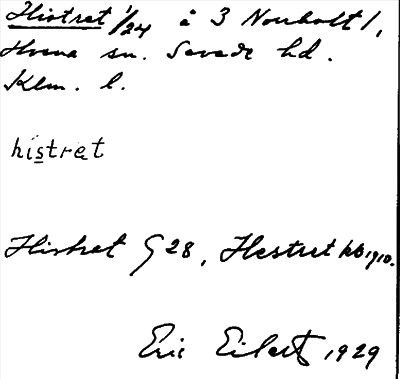 Histret 1/24 å 3 Norrholt 1,
Hvena sn. Sevede hd.
Klm. l.
histret
Histret G 28, Hestret kb 1910.
Eric Eilert 1929